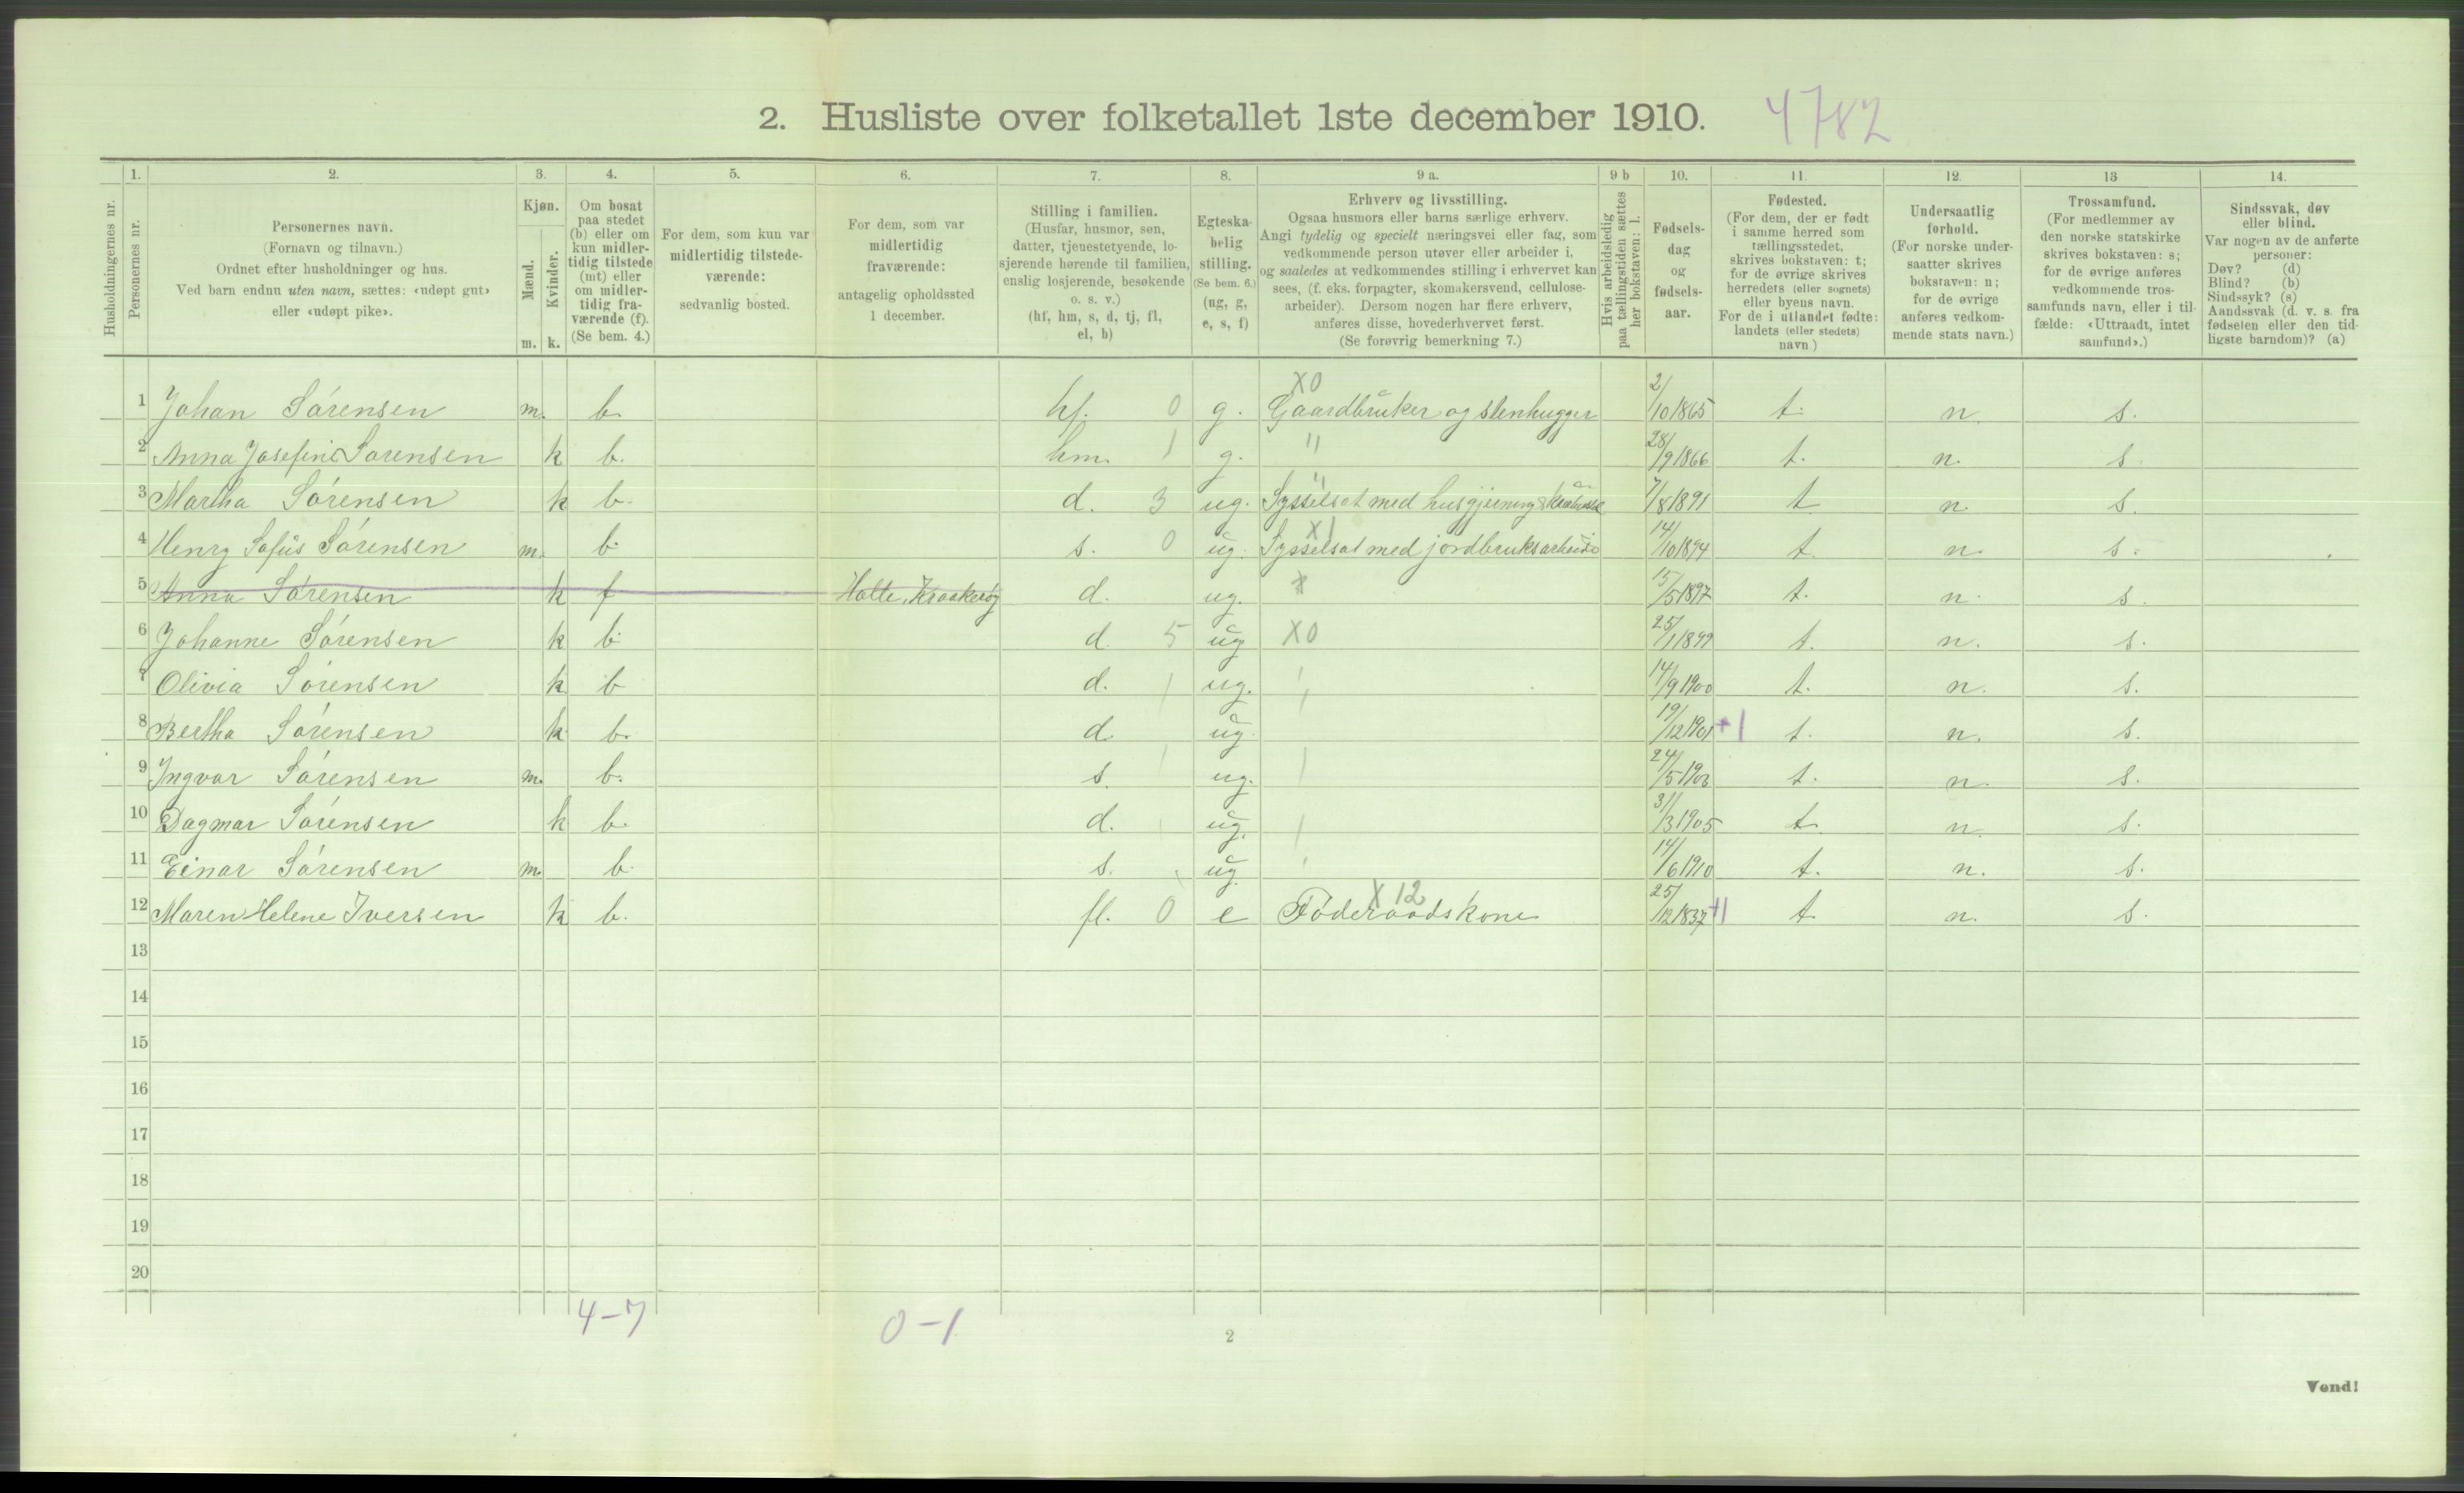 2. Husliste over folketallet 1ste december 1910. 4782
1. 2. 3. 4. 5. 6. 7. 8. 9 a. 9 b 10. 11. 12. 13 14.
Husholdningernes nr.
Personernes nr.
Personernes navn.
(Fornavn og tilnavn.)
Ordnet efter husholdninger og hus.
Ved barn endnu uten navn, sættes: «udøpt gut»
eller «udøpt pike».
Kjøn.
Mænd.
Kvinder.
m. k.
Om bosat
paa stedet
(b) eller om
kun midler-
tidig tilstede
(mt) eller
om midler-
tidig fra-
værende (f).
(Se bem. 4.)
For dem, som kun var
midlertidig tilstede-
værende:
sedvanlig bosted.
For dem, som var
midlertidig
fraværende:
antagelig opholdssted
1 december.
Stilling i familien.
(Husfar, husmor, søn,
datter, tjenestetyende, lo-
sjerende hørende til familien,
enslig losjerende, besøkende
o. s. v.)
(hf, hm, s, d, tj, fl,
el, b)
Egteska-
belig
stilling.
(Se bem. 6.)
(ug, g,
e, s, f)
Erhverv og livsstilling.
Ogsaa husmors eller barns særlige erhverv.
Angi tydelig og specielt næringsvei eller fag, som
vedkommende person utøver eller arbeider i,
og saaledes at vedkommendes stilling i erhvervet kan
sees, (f. eks. forpagter, skomakersvend, cellulose-
arbeider). Dersom nogen har flere erhverv,
anføres disse, hovederhvervet først.
(Se forøvrig bemerkning 7.)
Hvis arbeidsledig
paa tællingstiden sættes
her bokstaven: l.
Fødsels-
dag
og
fødsels-
aar.
Fødested.
(For dem, der er født
i samme herred som
tællingsstedet,
skrives bokstaven: t;
for de øvrige skrives
herredets (eller sognets)
eller byens navn.
For de i utlandet fødte:
landets (eller stedets)
navn.)
Undersaatlig
forhold.
(For norske under-
saatter skrives
bokstaven: n;
for de øvrige
anføres vedkom-
mende stats navn.)
Trossamfund.
(For medlemmer av
den norske statskirke
skrives bokstaven: s;
for de øvrige anføres
vedkommende tros-
samfunds navn, eller i til-
fælde: «Uttraadt, intet
samfund».)
Sindssvak, døv
eller blind.
Var nogen av de anførte
personer:
Døv? (d)
Blind? (b)
Sindssyk? (s)
Aandssvak (d. v. s. fra
fødselen eller den tid-
ligste barndom)? (a)
1 Johan Sørensen m. b. hf. 0 g. X0 Gaardbruker og stenhugger 2/10 1865 t. n. s.
2 Anna Josefine Sørensen k b. hm. 1 g. " 28/9 1866 t. n. s.
3 Martha Sørensen k b. d. 3 ug. " Sysselsat med husgjerning 7/8 1891 t n. s.
4 Henry Sofus Sørensen m. b. s. 0 ug. X1 Sysselsat med jordbruksarbeide 14/10 1894 t. n. s.
5 Anna Sørensen k f Holte, Kraakerøy d. ug. x 15/5 1897 t. n. s.
6 Johanne Sørensen k b. d. 5 ug X0 25/1 1899 t. n. s.
7 Olivia Sørensen k b d. 1 ug. " 14/9 1900 t. n. s.
8 Bertha Sørensen k b. d. ug. 19/12 1901 +1 t. n. s.
9 Ingvar Sørensen m. b. s. 1 ug. 1 24/5 1903 t. n. s.
10 Dagmar Sørensen k b. d. ug. 1 31/3 1905 t. n. s.
11 Einar Sørensen m. b. s. ug. 14/6 1910 t. n. s.
12 Maren Helene Iversen k b. fl. 0 e X 12 Føderaadskone 25/12 1837 +1 t. n. s.
13
14
15
16
17
18
19
20
4-7 0-1
2
Vend!